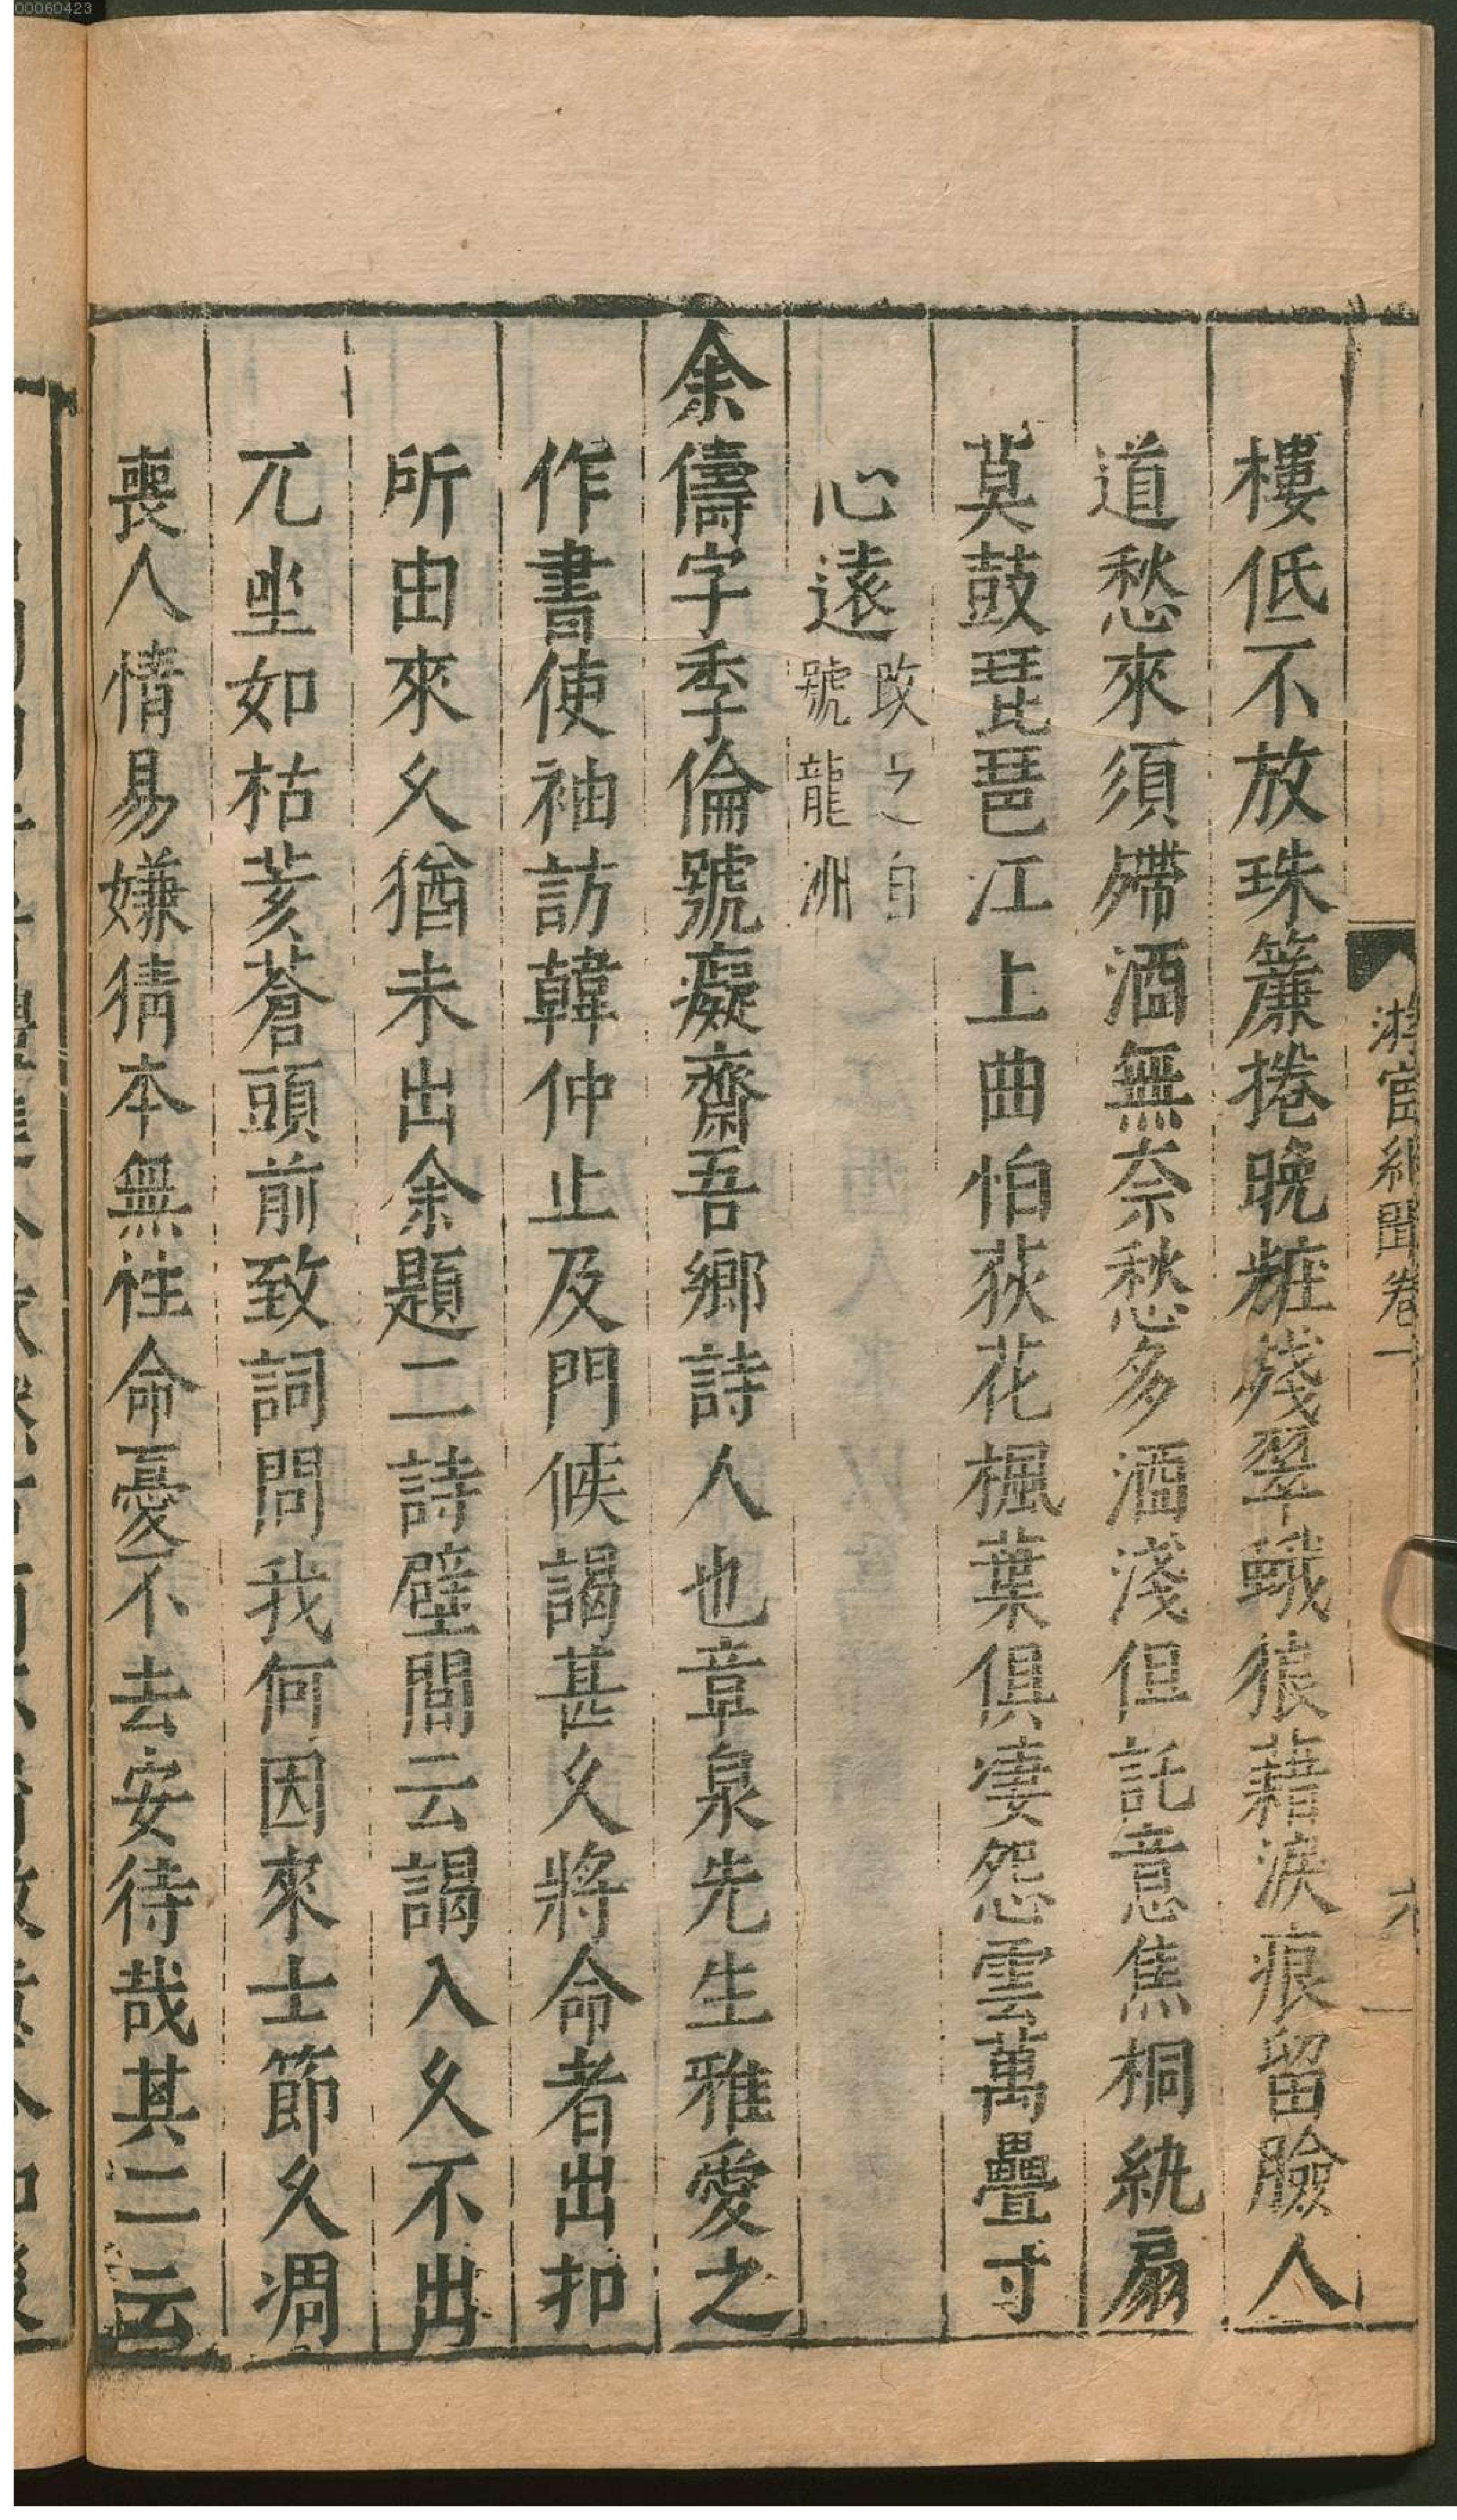 00060423
游宦紀聞卷一
六
樓低不放珠簾捲晚粧殘翠蛾狼藉淚痕留臉人
道愁來須殢酒無奈愁多酒淺但託意焦桐紈扇
莫鼓琵琶江上曲怕荻花楓葉俱淒怨雲萬疊寸
心遠改之自號龍洲
余儔字季倫號癡齋吾鄉詩人也章泉先生雅愛之
作書使袖訪韓仲止及門候謁甚久將命者出扣
所由來久猶未出余題二詩壁間云謁入久不出
兀坐如枯荄蒼頭前致詞問我何因來士節久凋
喪人情易嫌猜本無性命憂不去安待哉其二云